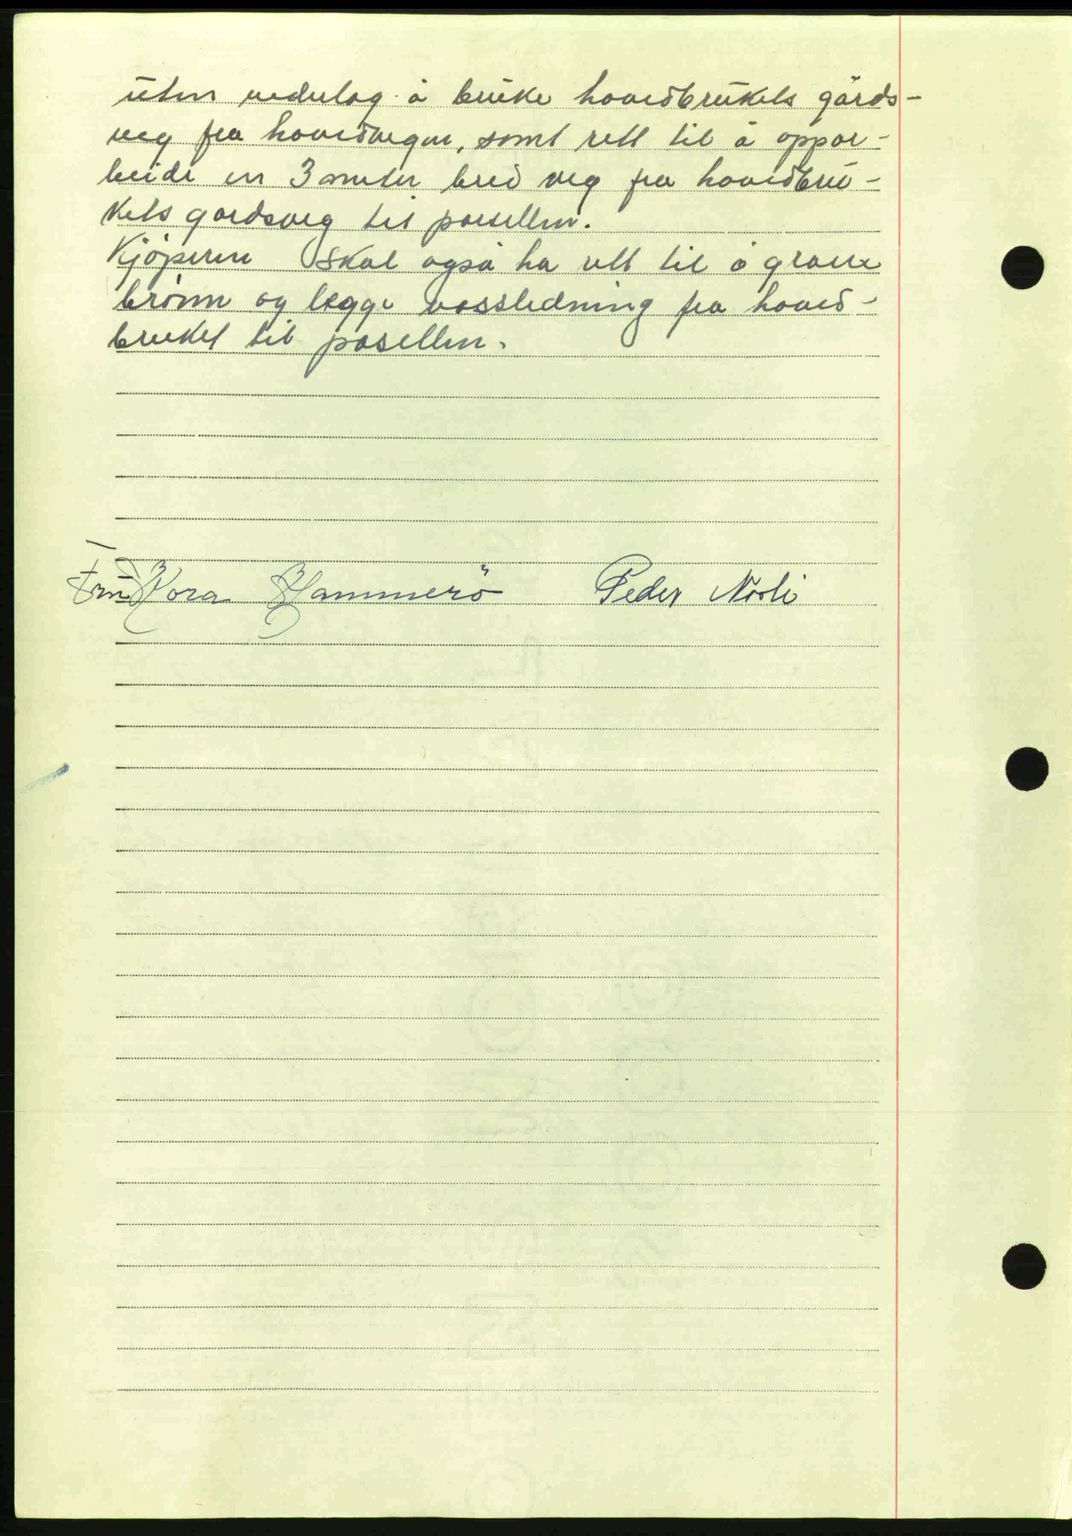 uten vederlag å bruke hovedbrukets gårds-
veg fra hovedvegen, samt rett til å oppar-
beide en 3 meter bred veg fra hovedbru-
kets gardsveg til parsellen.
Kjøperen skal også ha rett til å grave
brønn og legge vassledning fra hoved-
bruket til parsellen.
Fru Kora Hammerö Peder Norli